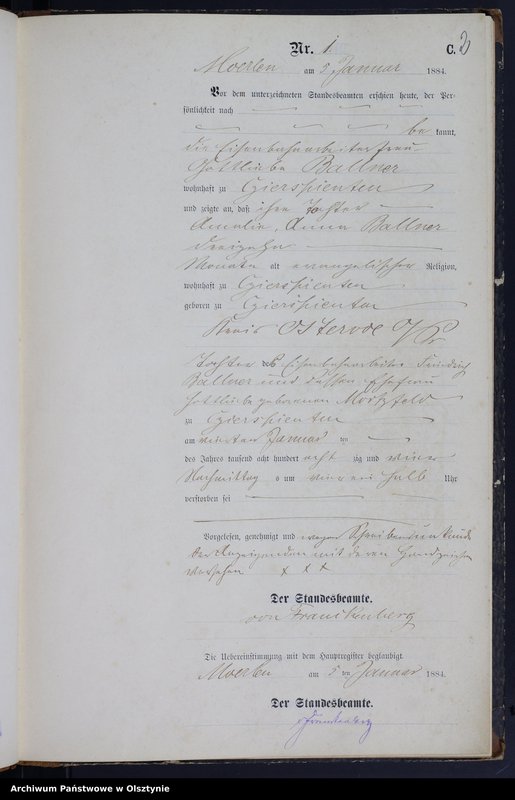 Nr. 1 C. 2
Moerlen am 5 Januar 1884.
Vor dem unterzeichneten Standesbeamten erschien heute, der Per-
sönlichkeit nach
be kannt,
die Eisenbahnarbeiterfrau
Gottliebe Ballner
wohnhaft zu Gierspienten
und zeigte an, daß ihre Tochter
Amalie, Anna Ballner
dreizehn
Monate alt evangelischer Religion,
wohnhaft zu Gierspienten
geboren zu Gierspienten
Kreis Osterode O/Pr
Tochter des Eisenbahnarbeiter Friedrich
Ballner und dessen Ehefrau
Gottliebe geborenen
zu Gierspienten
am vierten Januar
des Jahres tausend acht hundert acht zig und vier
Nachmittag s um vier ein halb Uhr
verstorben sei
Vorgelesen, genehmigt und wegen Schreibensunkunde
der Anzeigenden mit deren Handzeichen
versehen x x x
Der Standesbeamte.
von Franckenberg
Die Uebereinstimmung mit dem Hauptregister beglaubigt.
Moerlen am 5 ten Januar 1884.
Der Standesbeamte.
v Franckenberg
Archiwum Państwowe w Olsztynie